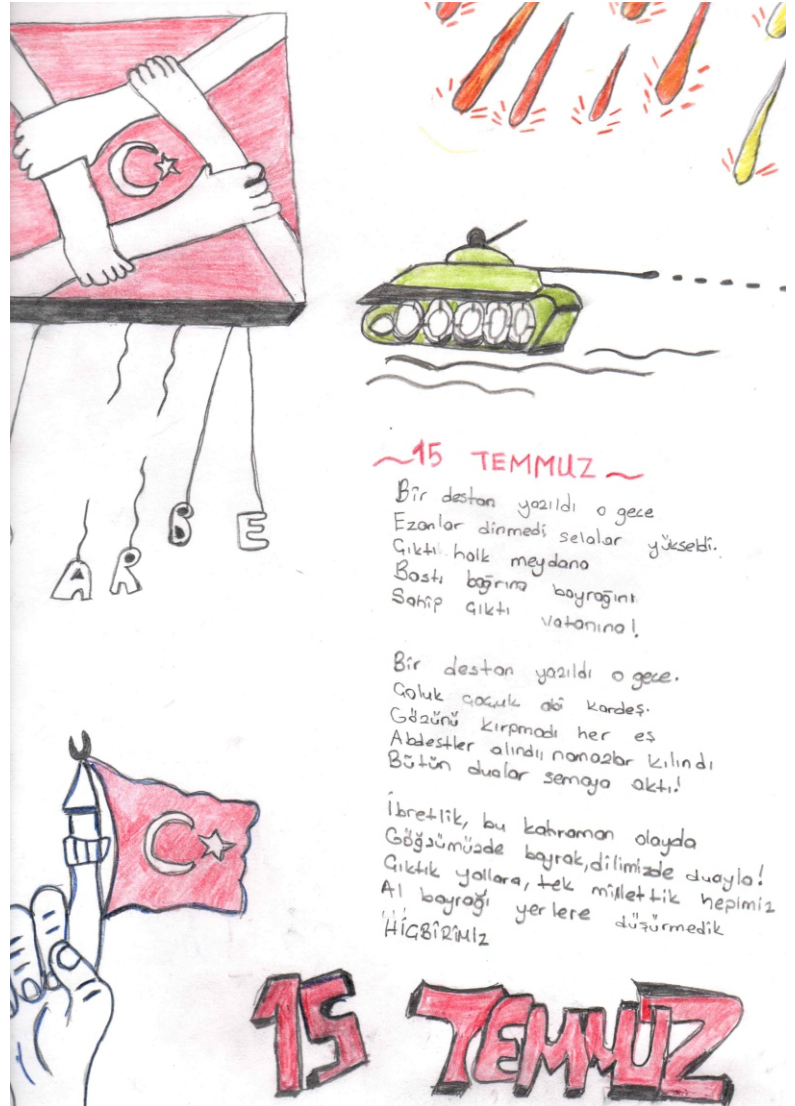 A R B E
~15 TEMMUZ~
Bir destan yazıldı o gece
Ezanlar dinmedi selalar yükseldi.
Çıktı halk meydana
Bastı bağrına bayrağını
Sahip çıktı vatanına!
Bir destan yazıldı o gece.
Çoluk çocuk abi kardeş.
Gözünü kırpmadı her eş
Abdestler alındı, namazlar kılındı
Bütün dualar semaya aktı!
İbretlik, bu kahraman olayda
Göğsümüzde bayrak, dilimizde duayla!
Çıktık yollara, tek millettik hepimiz
Al bayrağı yerlere düşürmedik
HİÇBİRİMİZ
15 TEMMUZ